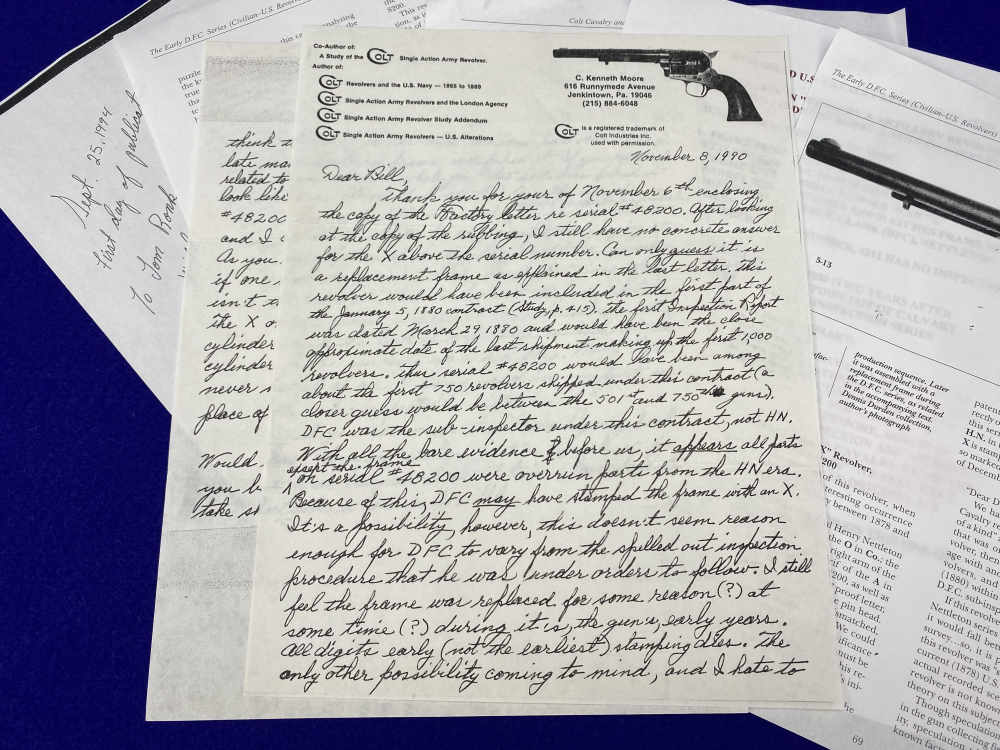 Co-Author of:
A Study of the COLT Single Action Army Revolver.
Author of:
COLT Revolvers and the U.S. Navy — 1865 to 1889
COLT Single Action Army Revolvers and the London Agency
COLT Single Action Army Revolver Study Addendum
COLT Single Action Army Revolvers — U.S. Alterations
C. Kenneth Moore
616 Runnymede Avenue
Jenkintown, Pa. 19046
(215) 884-6048
COLT is a registered trademark of
Colt Industries Inc.
used with permission.
November 8, 1990
Dear Bill,
Thank you for your of November 6th enclosing
the copy of the Factory letter re serial #48200. After looking
at the copy of the rubbing, I still have no concrete answer
for the X above the serial number. Can only guess it is
a replacement frame as explained in the last letter, this
revolver would have been included in the first part of
the January 5, 1880 contract (Study, p. 415). the first Inspection Report
was dated March 29, 1880 and would have been the close
approximate date of the last shipment making up the first 1,000
revolvers. thus serial #48200 would have been among
about the first 750 revolvers shipped under this contract (a
closer guess would be between the 501st and 750th guns).
DFC was the sub-inspector under this contract, not HN.
With all the bare evidence before us, it appears all parts
except the frame
on serial #48200 were overrun parts from the HN era.
Because of this, DFC may have stamped the frame with an X.
It's a possibility, however, this doesn't seem reason
enough for DFC to vary from the spelled out inspection
procedure that he was under orders to follow. I still
feel the frame was replaced for some reason (?) at
some time (?) during it is, the gun's, early years.
All digits early (not the earliest) stamping dies. The
only other possibility coming to mind, and I hate to
think
late
related to
look like
#48200
and I
As you
if one
isn't
The X
cylinder
cylinder
never
place of
Would
you
take
Sept. 25, 1994
First day of
To Tom
The Early D.F.C. Series (Civilian–U.S. Revolvers
puzzle
the
Colt Cavalry and
The Early D.F.C. Series (Civilian–U.S. Revolvers
5-13
production sequence. Later
it was assembled with a
replacement frame during
the D.F.C. series, as related
in the accompanying text.
Dennis Durden collection,
author's photograph
X" Revolver,
200
of this revolver, when
teresting occurrence
y between 1878 and
Henry Nettleton
the O in Co.; the
right arm of the
of the A in
200, as well as
proof letter,
pin head.
smatched.
We could
significance
must be
this re-
ini-
he
H.N. in
X is stam
so marked
of Decem
"Dear D
Cavalry r
of a kind
that was
volver, the
age with an
volvers, and
(1880) within
D.F.C. sub-insp
If this revol
Nettleton series
it would fall be
survey...so, it is
this revolver was
current (1878) U.S.
actual recorded
revolver is not know
theory on this subject
Though speculation
in the gun collecting f
ity, speculation
known fa
69